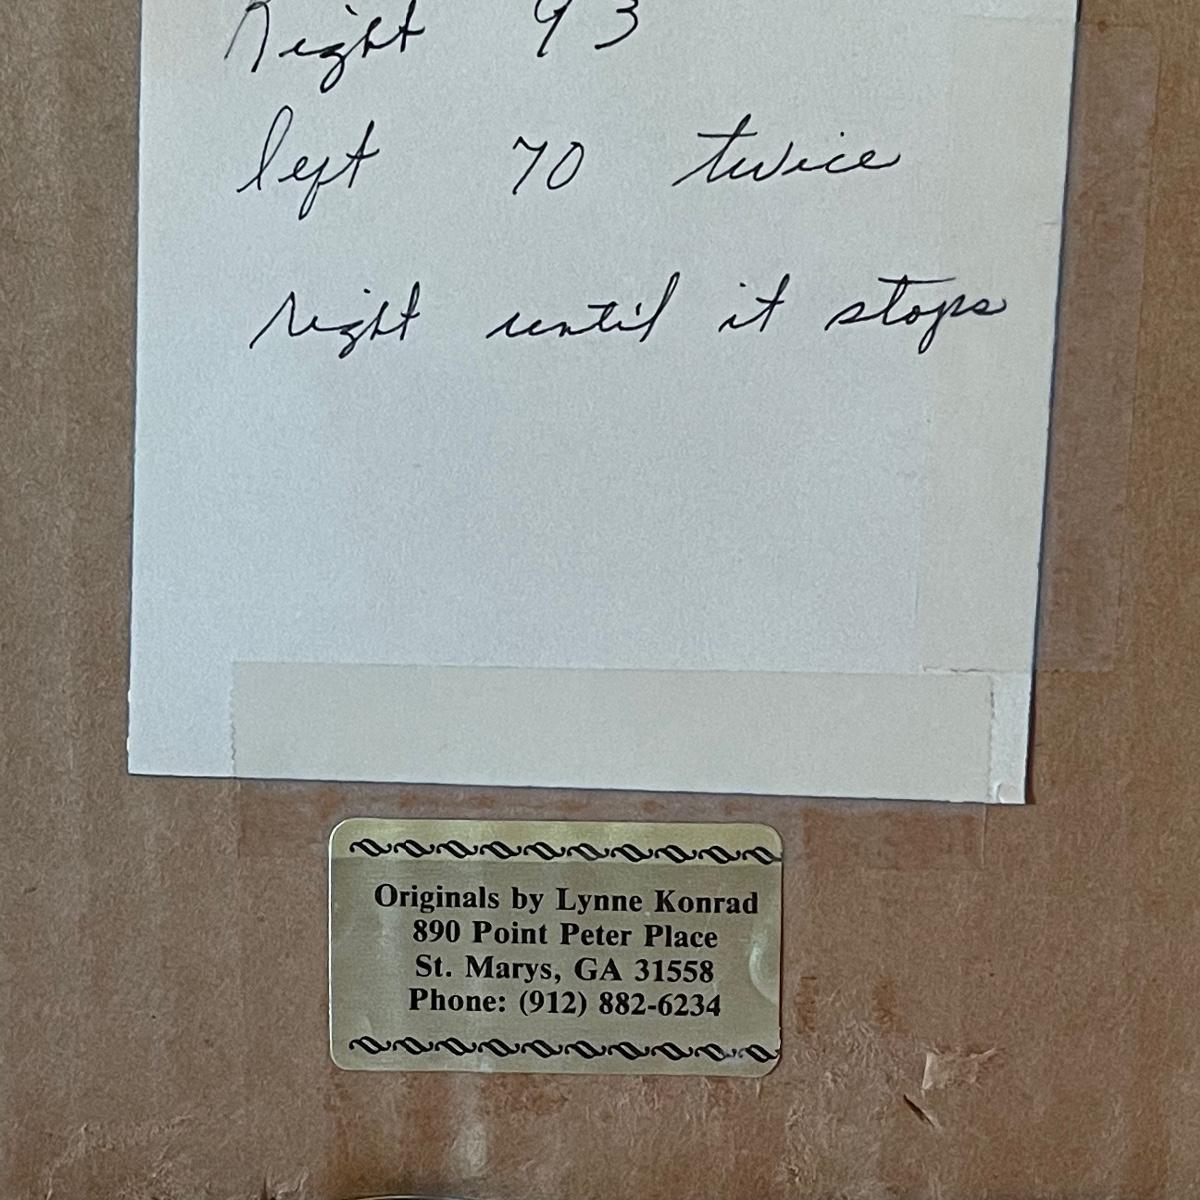 Right 93
left 70 twice
right until it stops
Originals by Lynne Konrad
890 Point Peter Place
St. Marys, GA 31558
Phone: (912) 882-6234